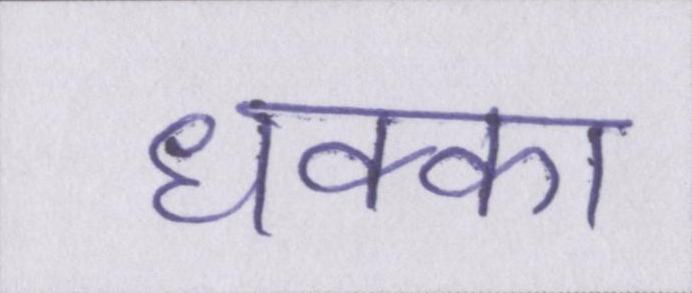 धक्का